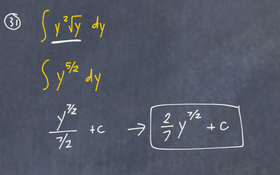 31
∫ y²√y dy
∫ y^(5/2) dy
y^(7/2) / 7/2 + c → 2/7 y^(7/2) + c